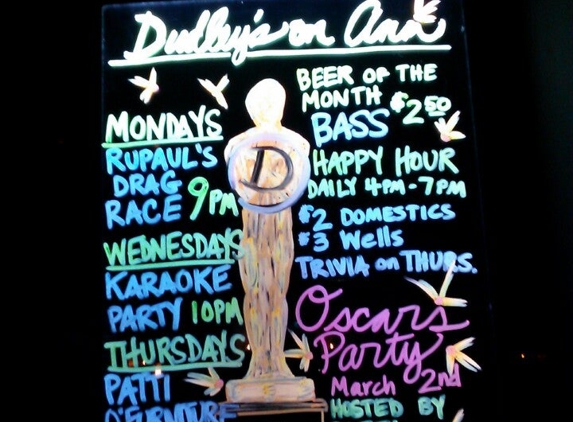 Dudley's on Ann
MONDAYS
RUPAUL'S
DRAG
RACE 9PM
WEDNESDAYS
KARAOKE
PARTY 10PM
THURSDAYS
PATTI
D
BEER OF THE
MONTH $2.50
BASS
HAPPY HOUR
DAILY 4PM-7PM
$2 DOMESTICS
$3 Wells
TRIVIA on THURS.
Oscars
Party
March 2nd
HOSTED BY